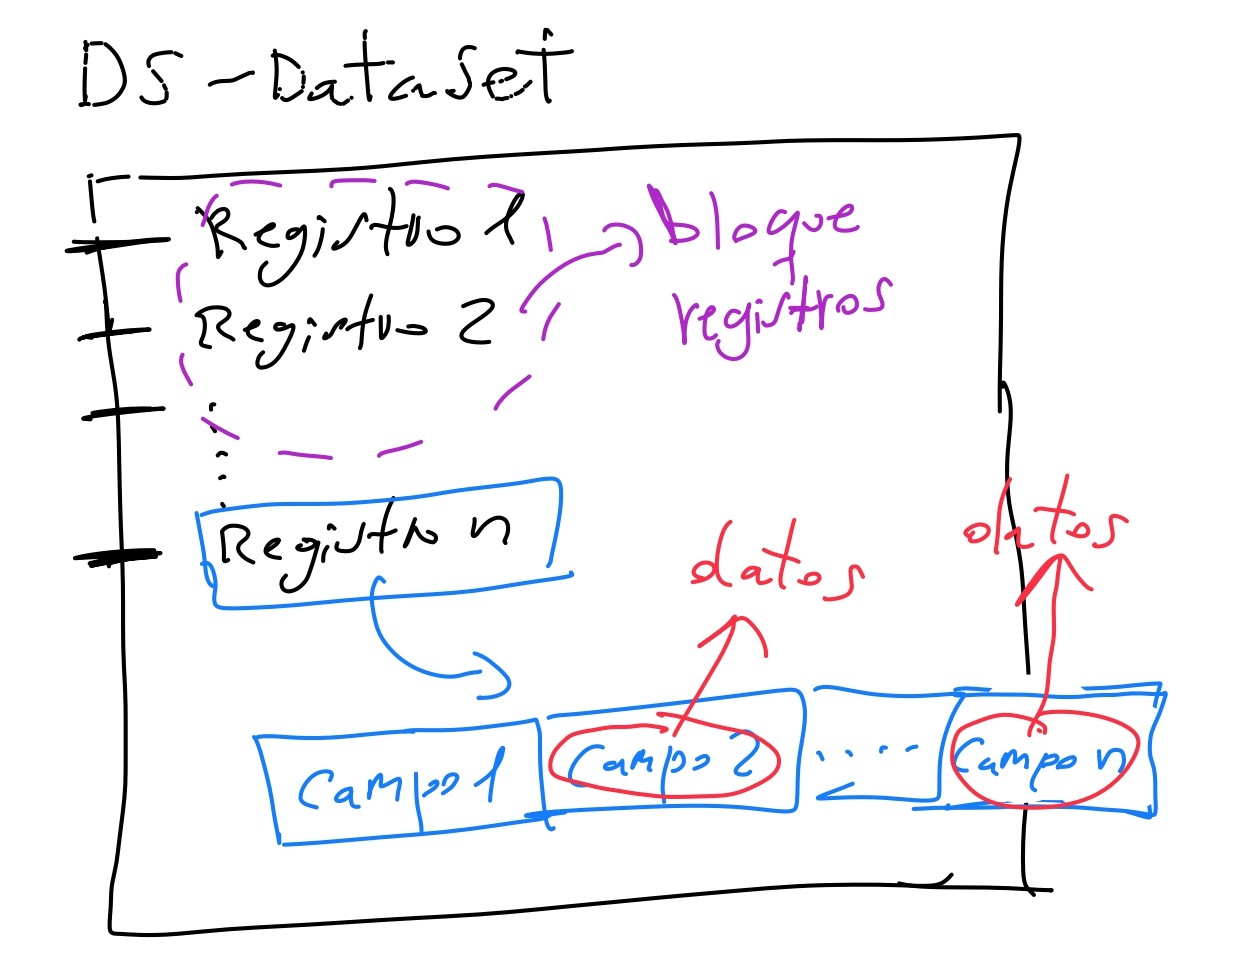 DS - DataSet
Registro 1
bloque
registros
Registro 2
Registro n
datos
datos
Campo 1
Campo 2
.....
Campo n